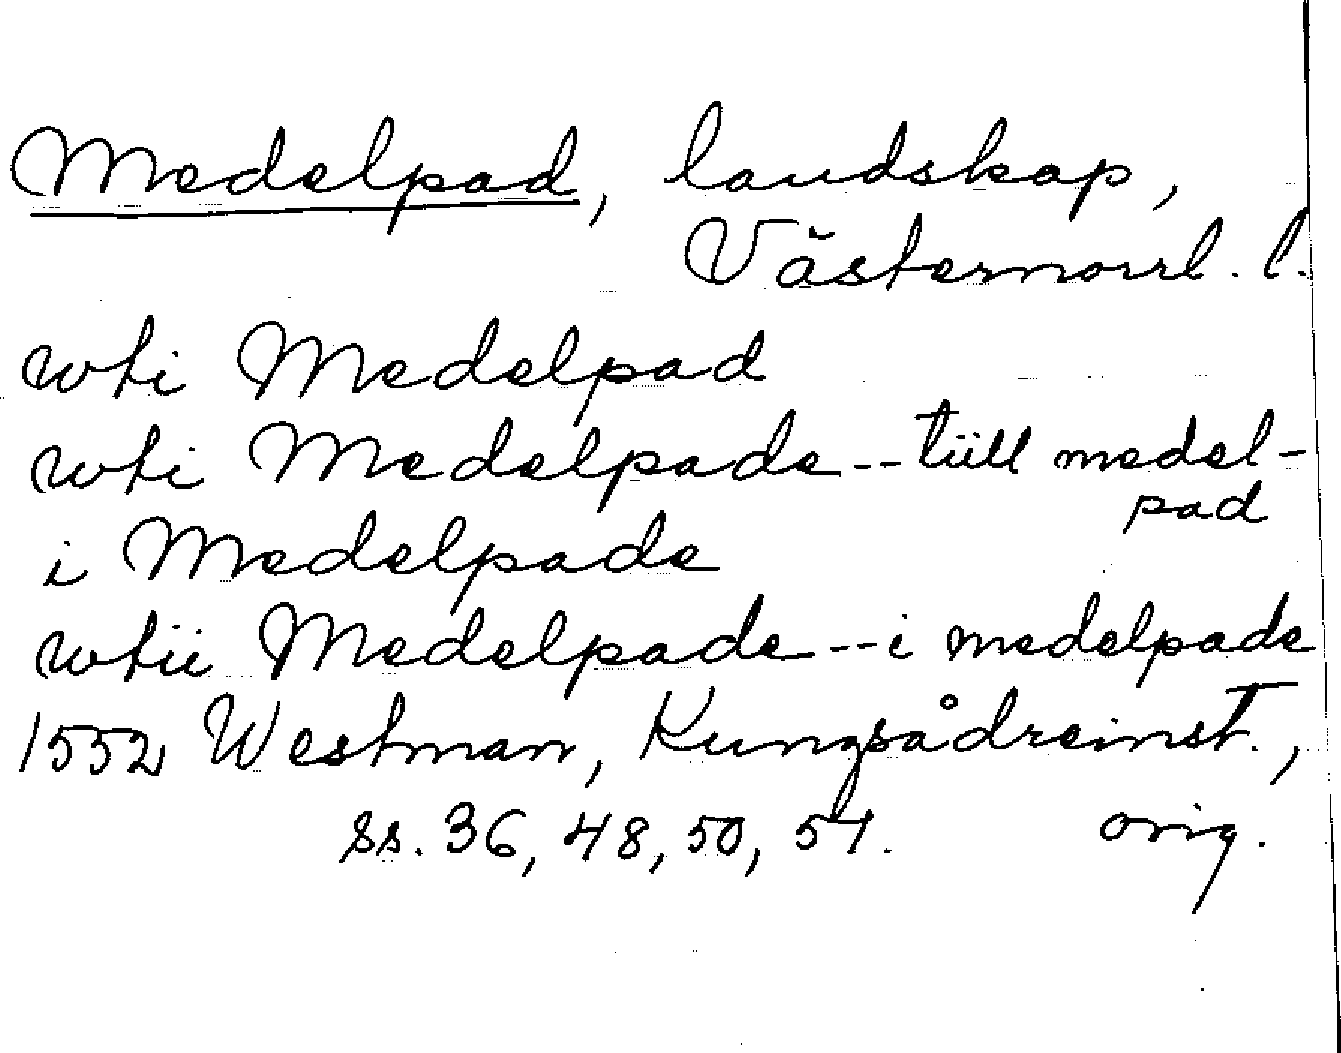 Medelpad, landskap,
Västernorrl. l.
wti Medelpad
wti Medelpade -- tiill medel-
pad
i Medelpade
wtii Medelpade -- i medelpade
1552 Westman, Kungsådreinst.,
ss. 36, 48, 50, 51. orig.